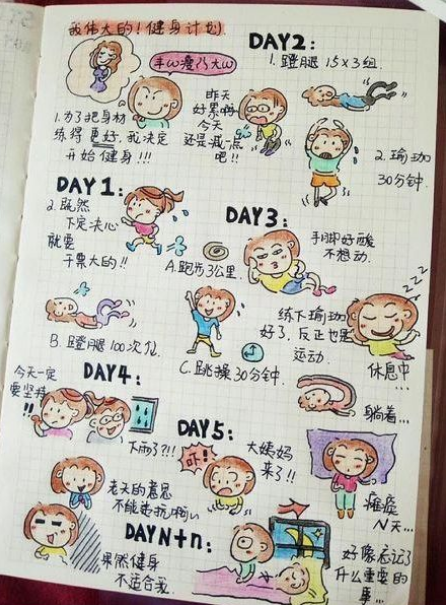 我伟大的！健身计划.
1.为了把身材
练得更好,我决定
开始健身!!!
DAY2:
1.蹬腿15×3组.
昨天
好累啊
今天
还是减一点
吧!!
2.瑜珈
30分钟.
DAY1:
2.既然
下定决心
就要
干票大的!!
A.跑步3公里.
B.蹬腿100次/位
C.跳操30分钟.
DAY3:
手脚好酸
不想动.
练下瑜珈
好了,反正也是
运动.
休息中
...
zzz
躺着...
DAY4:
今天一定
要坚持
!!
下雨了?!!
老天的意思
不能违抗啊
DAY5:
吓!
大姨妈
来了!!
瘫痪
N天...
DAYN+n:
果然健身
不适合我.
好像忘记了
什么重要的
事...